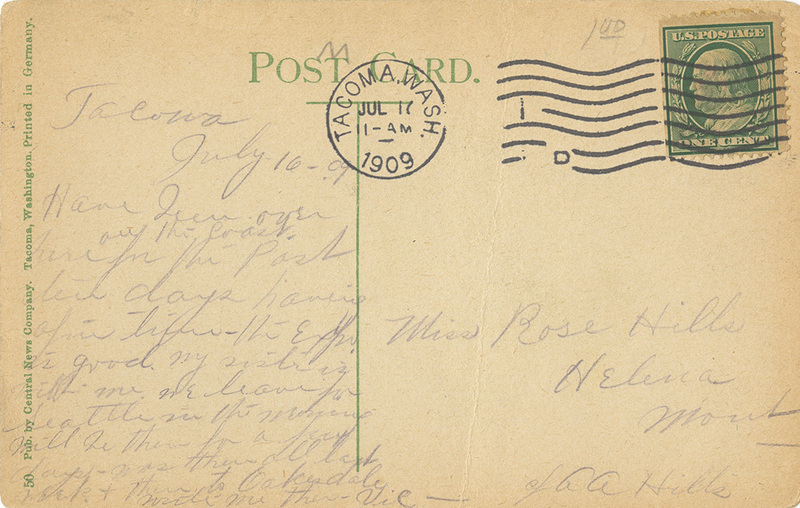 50 Pub. by Central News Company. Tacoma, Washington. Printed in Germany.
POST CARD.
TACOMA, WASH.
JUL 17
11-AM
1909
D
U.S. POSTAGE
ONE CENT
100
Tacoma
July 16-09
Have been over
on the Coast
here for the Past
ten days having
a fine time - the Expo
is good. my sister is
with me. we leave for
Seattle in the morning
will be there for a few
days - was there all last
week & then to Oakesdale
write me there - Vic -
Miss Rose Hills
Helena
Mont
c/o A A Hills